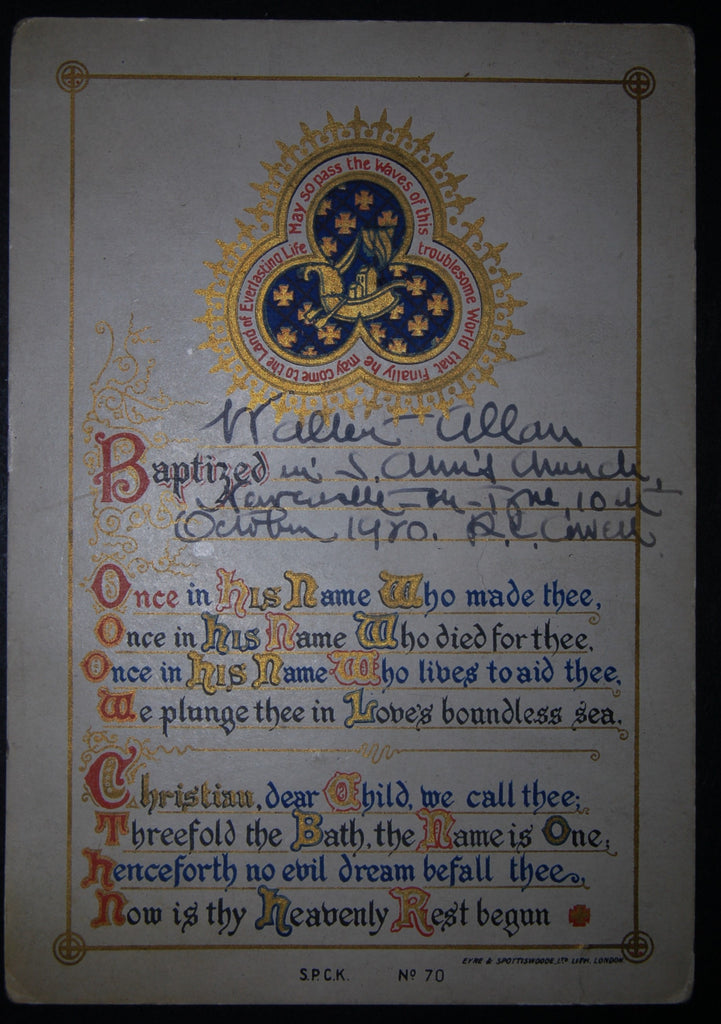 May so pass the Waves of this troublesome World that Finally he may come to the Land of Everlasting Life
Walter Allan
Baptized in S. Ann's Church,
Newcastle-on-Tyne, 10th
October 1920. R.C. Cowell
Once in his Name Who made thee,
Once in his Name Who died for thee,
Once in his Name Who lives to aid thee,
We plunge thee in Love's boundless sea.
Christian, dear Child, we call thee;
Threefold the Bath, the Name is One;
henceforth no evil dream befall thee,
Now is thy heavenly Rest begun
EYRE & SPOTTISWOODE, LTD LITH, LONDON.
S.P.C.K. No 70